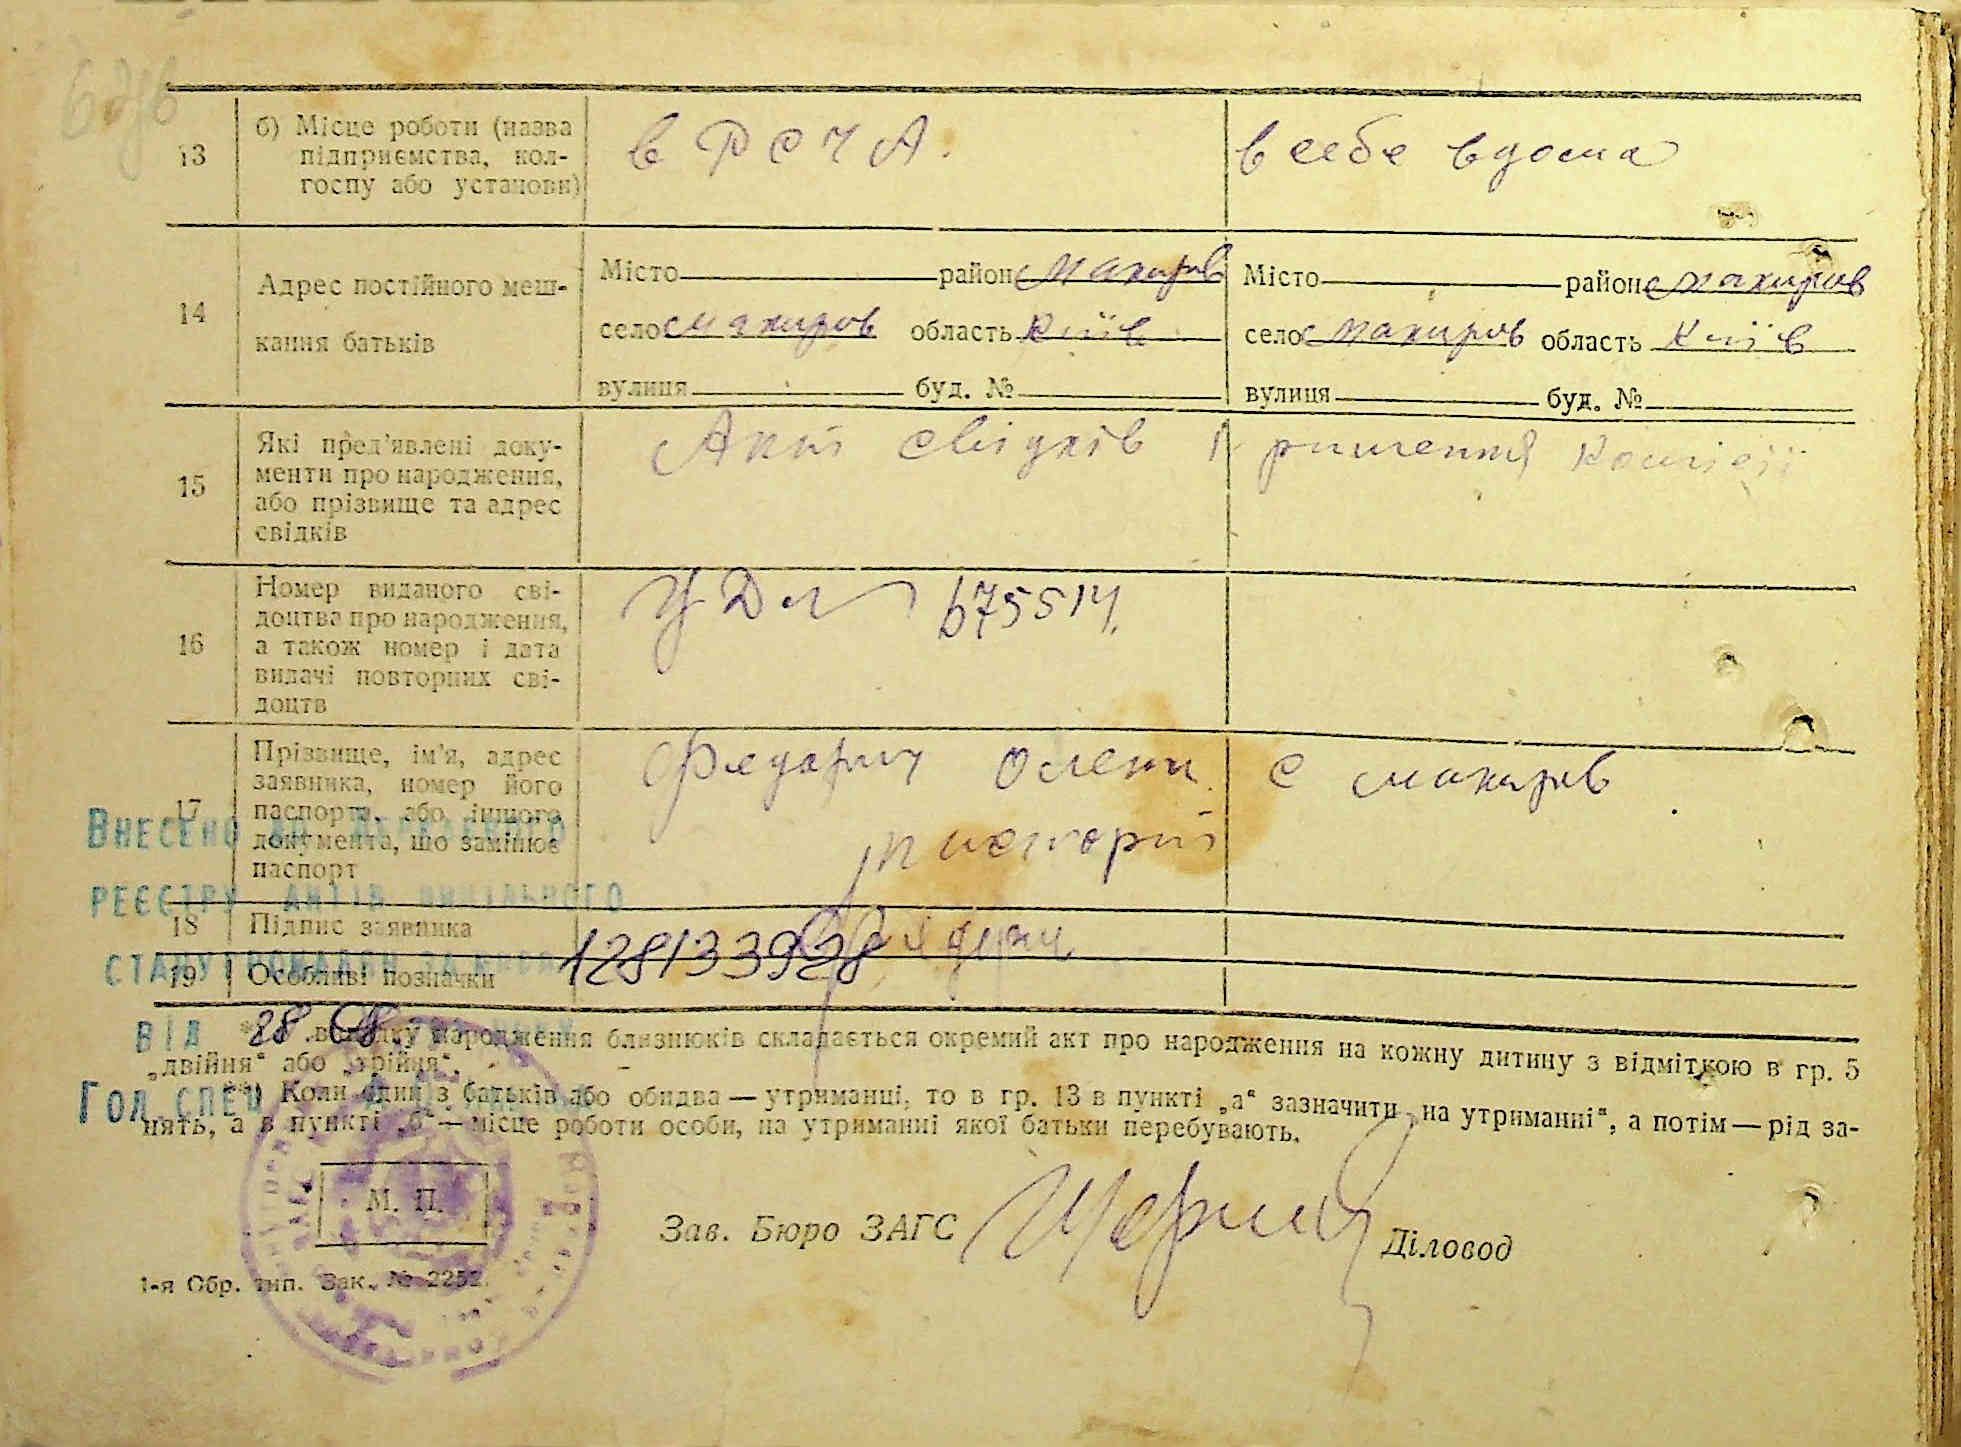 13 б) Місце роботи (назва підприємства, колгоспу або установи) в РСЧА. в себе вдома
14 Адрес постійного мешкання батьків
Місто район Макарів Місто район Макарів
село Макарів область Київ село Макарів область Київ
вулиця буд. № вулиця буд. №
15 Які пред'явлені документи про народження, або прізвище та адрес свідків
Акт свідків і ришення комісії
16 Номер виданого свідоцтва про народження, а також номер і дата видачі повторних свідоцтв
675514
17 Прізвище, ім'я, адрес заявника, номер його паспорта, або іншого документа, що замінює паспорт
Федорич Олена с Макарів
18 Підпис заявника
19 Особливі позначки 128133928
ВНЕСЕНО ДО ДЕРЖАВНОГО
РЕЄСТРУ АКТІВ ЦИВІЛЬНОГО
СТАНУ ГРОМАДЯН ЗА
ВІД 28 08
ГОЛ. СПЕЦ
випадку народження близнюків складається окремий акт про народження на кожну дитину з відміткою в гр. 5
„двійня“ або „трійня“.
**) Коли один з батьків або обидва — утриманці, то в гр. 13 в пункті „а“ зазначити „на утриманні“, а потім — рід за-
нять, а в пункті „б“ — місце роботи особи, на утриманні якої батьки перебувають.
М. П.
Зав. Бюро ЗАГС Діловод
1-я Обр. тип. Зак. № 2252.